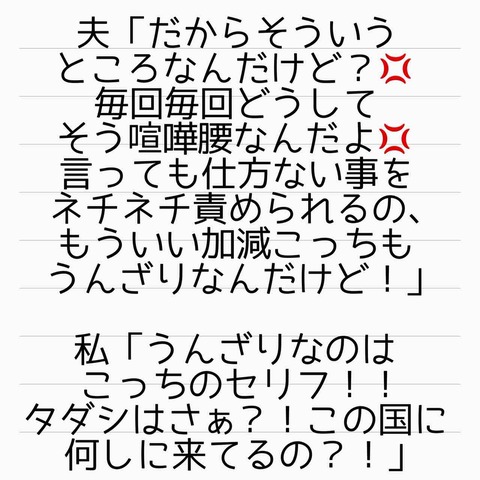 夫「だからそういう
ところなんだけど？💢
毎回毎回どうして
そう喧嘩腰なんだよ💢
言っても仕方ない事を
ネチネチ責められるの、
もういい加減こっちも
うんざりなんだけど！」
私「うんざりなのは
こっちのセリフ！！
タダシはさぁ？！この国に
何しに来てるの？！」